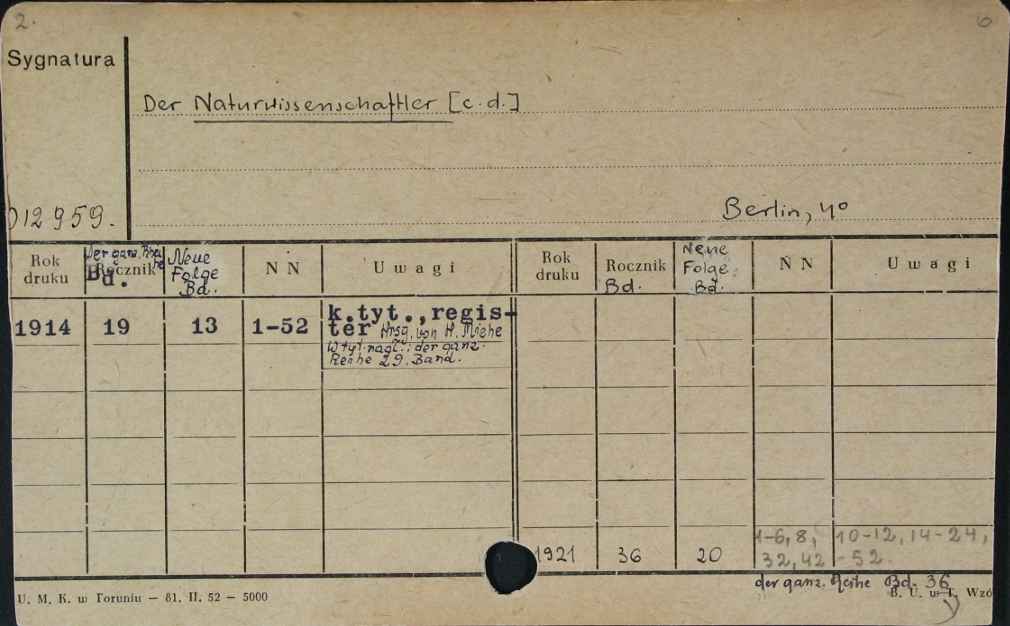 2.
6
Sygnatura
Der Naturwissenschaftler [c.d.]
012959.
Berlin, 4°
Rok druku
Der ganz. Reihe
Rocznik
Bd.
Neue Folge Bd.
N N
Uwagi
Rok druku
Rocznik
Bd.
Neue Folge. Bd.
N N
Uwagi
1914 19 13 1-52 k.tyt.,regis-
ter Hrsg. von H. Miehe
W tyt. nagł.: der ganz.
Reihe 29. Band.
1921 36 20 1-6, 8, 10-12, 14-24,
32, 42 - 52.
der ganz. Reihe Bd. 36
U. M. K. w Toruniu — 81. II. 52 — 5000
B. U. w T. Wzó